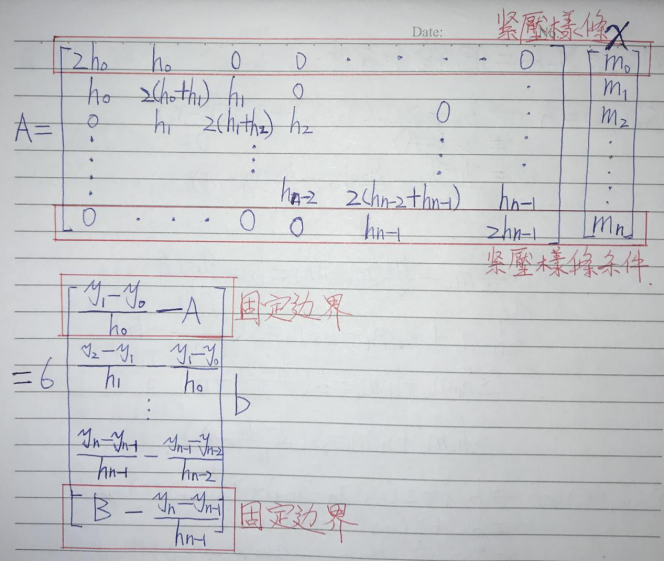 Date:
紧壓樣條 X
2h₀ h₀ 0 0 · · · · 0 m₀
h₀ 2(h₀+h₁) h₁ 0 · m₁
A= 0 h₁ 2(h₁+h₂) h₂ 0 · m₂
· · · · ·
· · · · ·
· hn-2 2(hn-2+hn-1) hn-1 ·
0 · · · 0 0 hn-1 2hn-1 mn
紧壓樣條条件.
(y₁-y₀)/h₀ - A 固定边界
=6 (y₂-y₁)/h₁ - (y₁-y₀)/h₀ b
⋮
(yn-yn-1)/hn-1 - (yn-1-yn-2)/hn-2
B - (yn-yn-1)/hn-1 固定边界